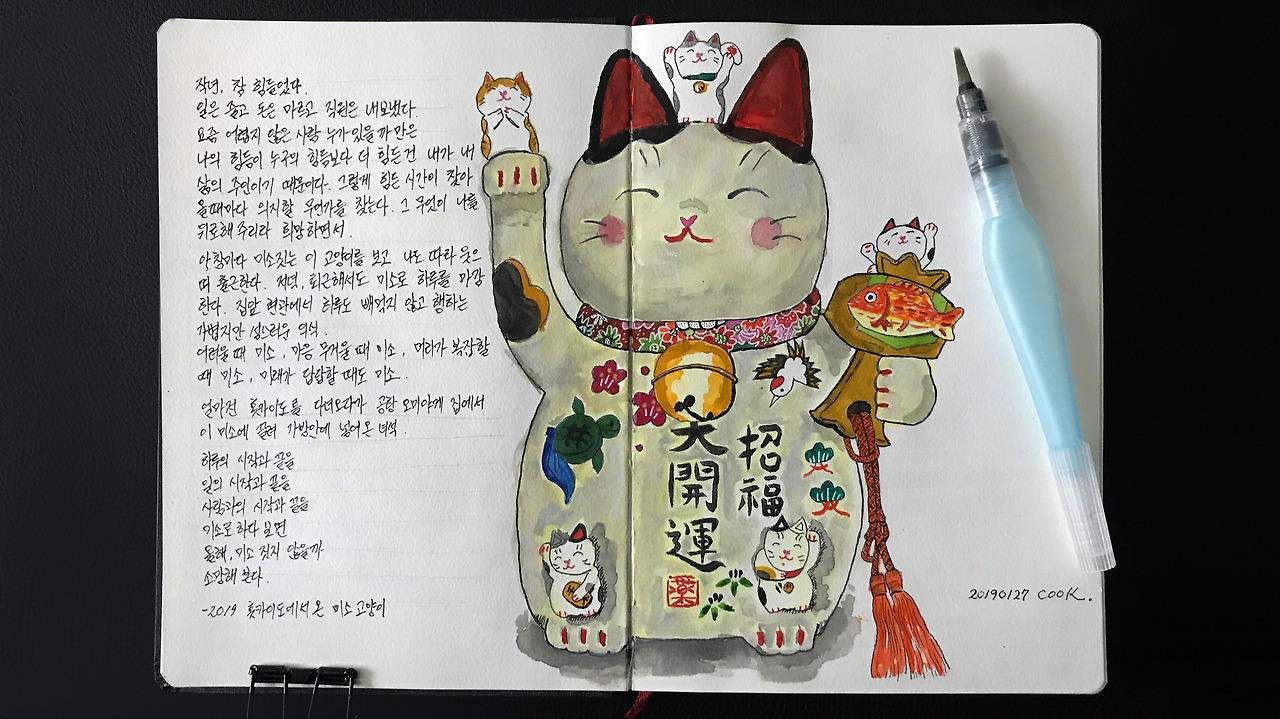 작년, 참 힘들었다.
일은 줄고 돈은 마르고 직원은 내보냈다.
요즘 어렵지 않은 사람 누가 있을까 만은
나의 힘듬이 누구의 힘듬보다 더 힘든건 내가 내
삶의 주인이기 때문이다. 그렇게 힘든 시간이 찾아
올때마다 의지할 무언가를 찾는다. 그 무엇이 나를
위로해 주리라 희망하면서.
아침마다 미소짓는 이 고양이를 보고 나도 따라 웃으
며 출근한다. 저녁, 퇴근해서도 미소로 하루를 마감
한다. 집앞 현관에서 하루도 빼먹지 않고 행하는
가볍지만 성스러운 의식.
어려울 때 미소, 마음 무거울 때 미소, 머리가 복잡할
때 미소, 미래가 답답할 때도 미소.
얼마전 홋카이도를 다녀오다가 공항 오미야게 집에서
이 미소에 끌려 가방안에 넣어온 녀석.
하루의 시작과 끝을
일의 시작과 끝을
사람과의 시작과 끝을
미소로 하다 보면
올해, 미소 짓지 않을까
소망해 본다.
-2019 홋카이도에서 온 미소 고양이
大開運
招福
20190127 COOK.